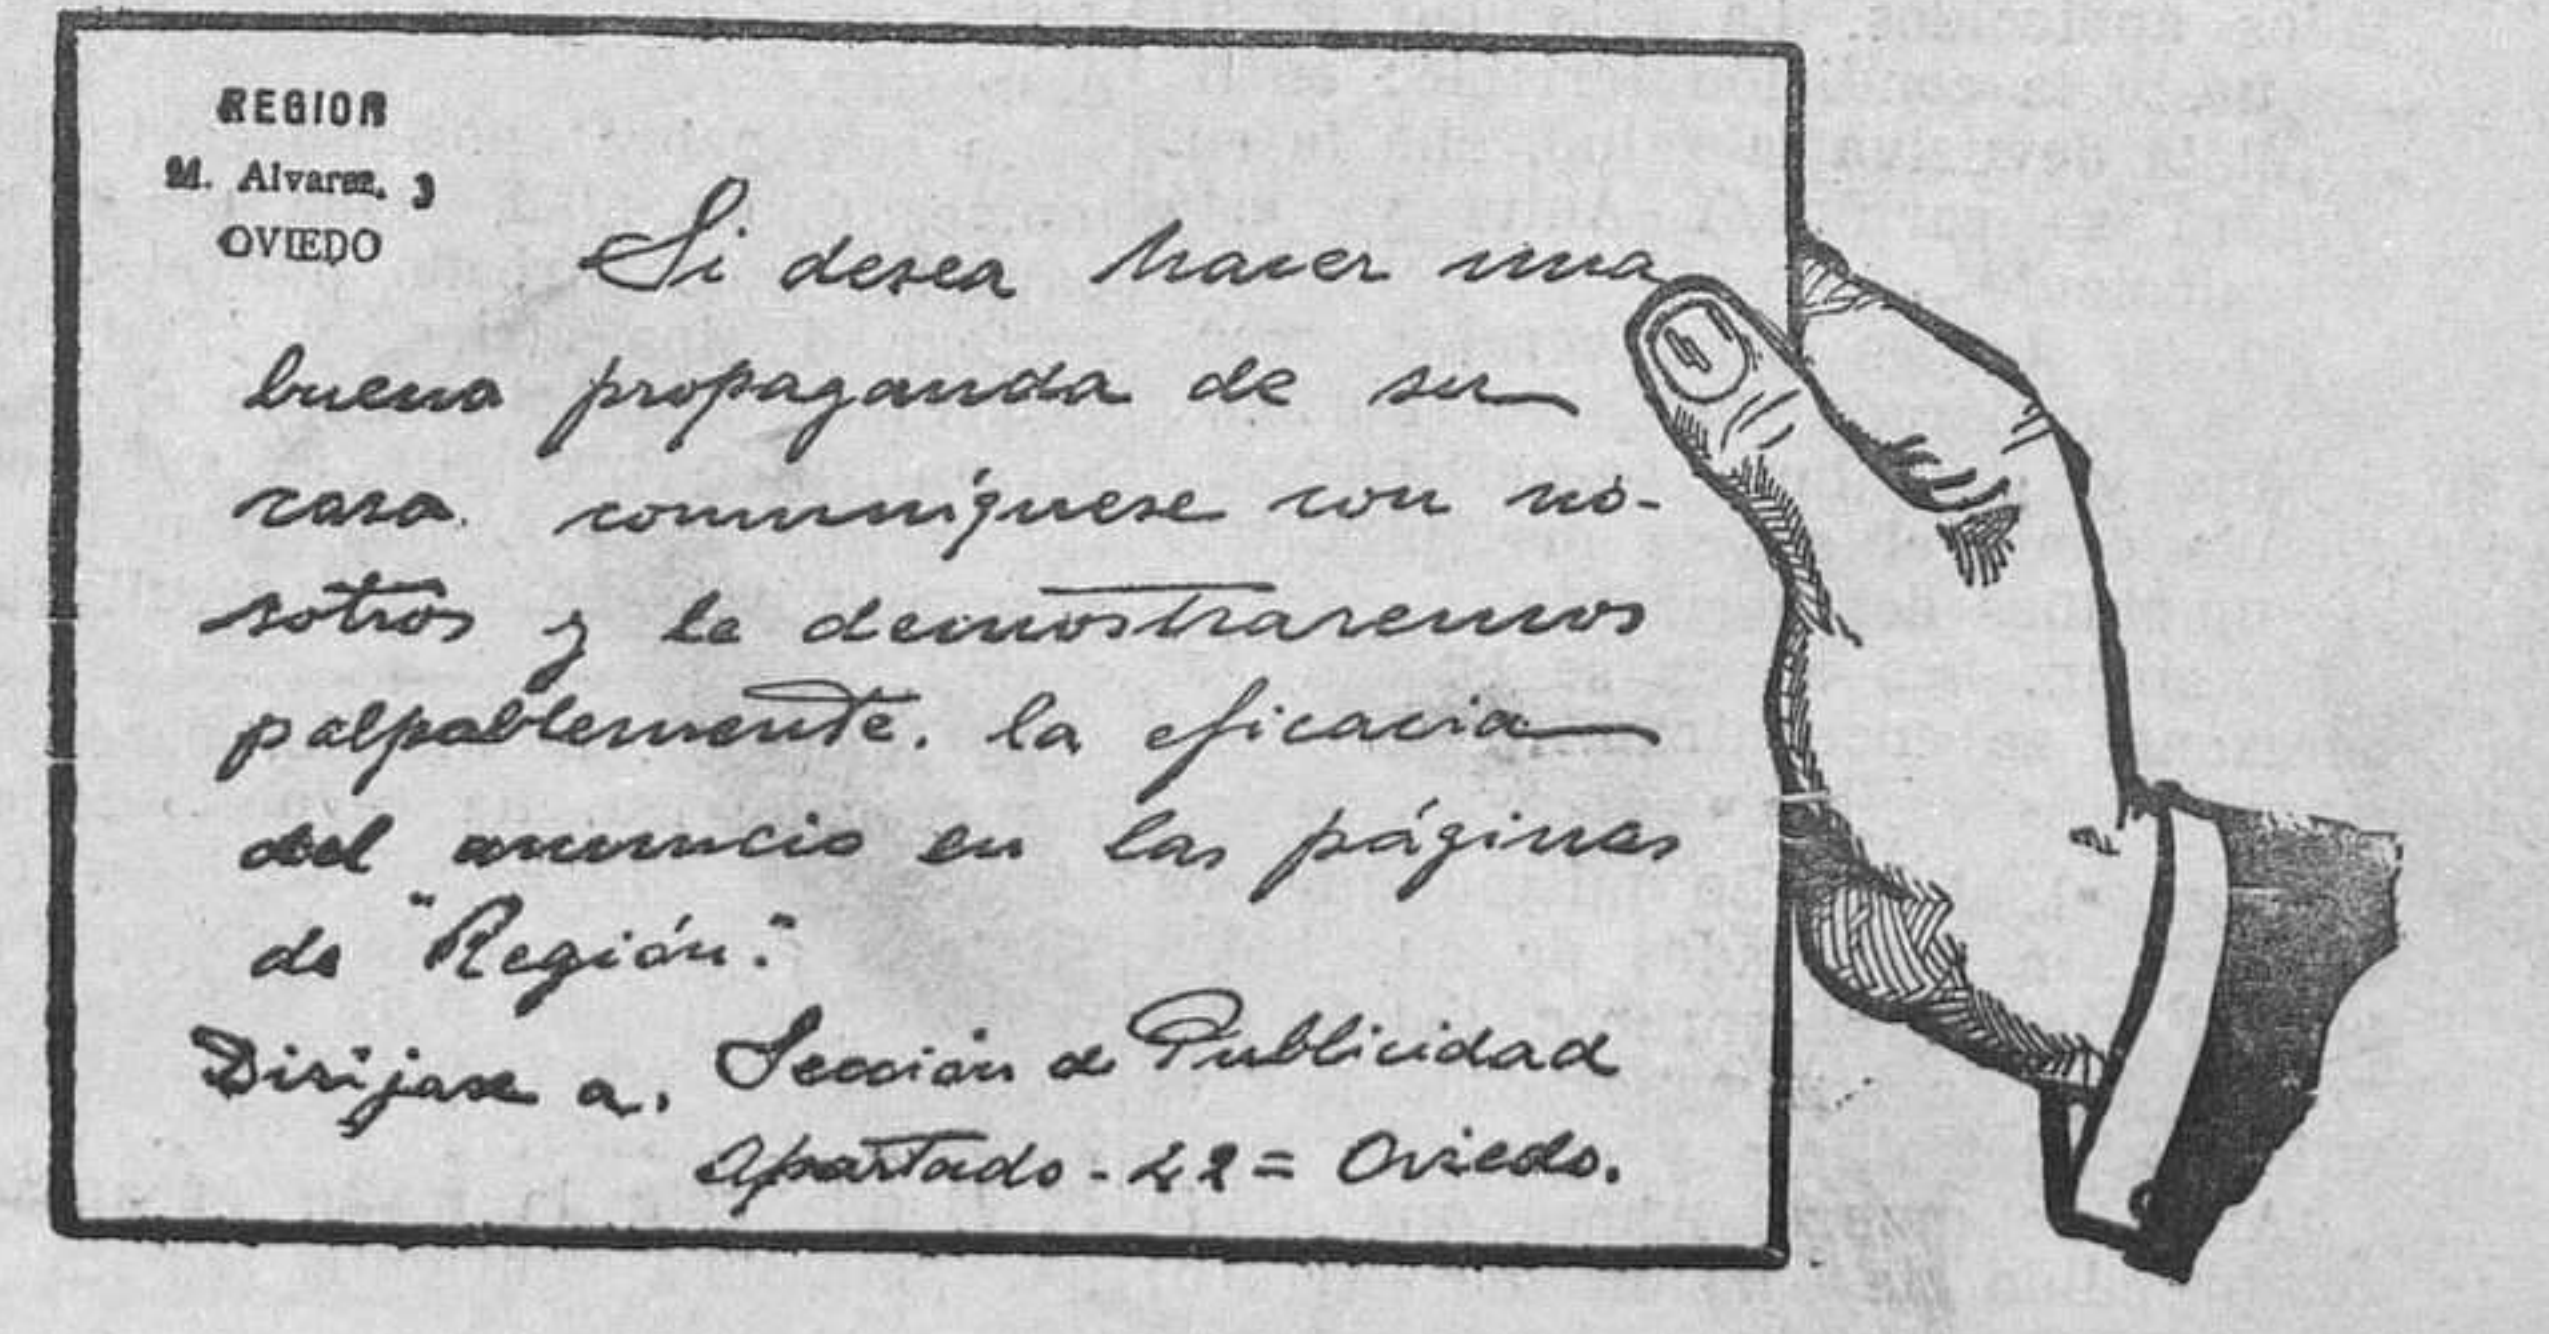 REGION
M. Alvarez, 3
OVIEDO
Si desea hacer una
buena propaganda de su
casa. comuníquese con no-
sotros y le demostraremos
palpablemente. la eficacia
del anuncio en las páginas
de "Región."
Dirijase a. Sección de Publicidad
Apartado - 42 = Oviedo.